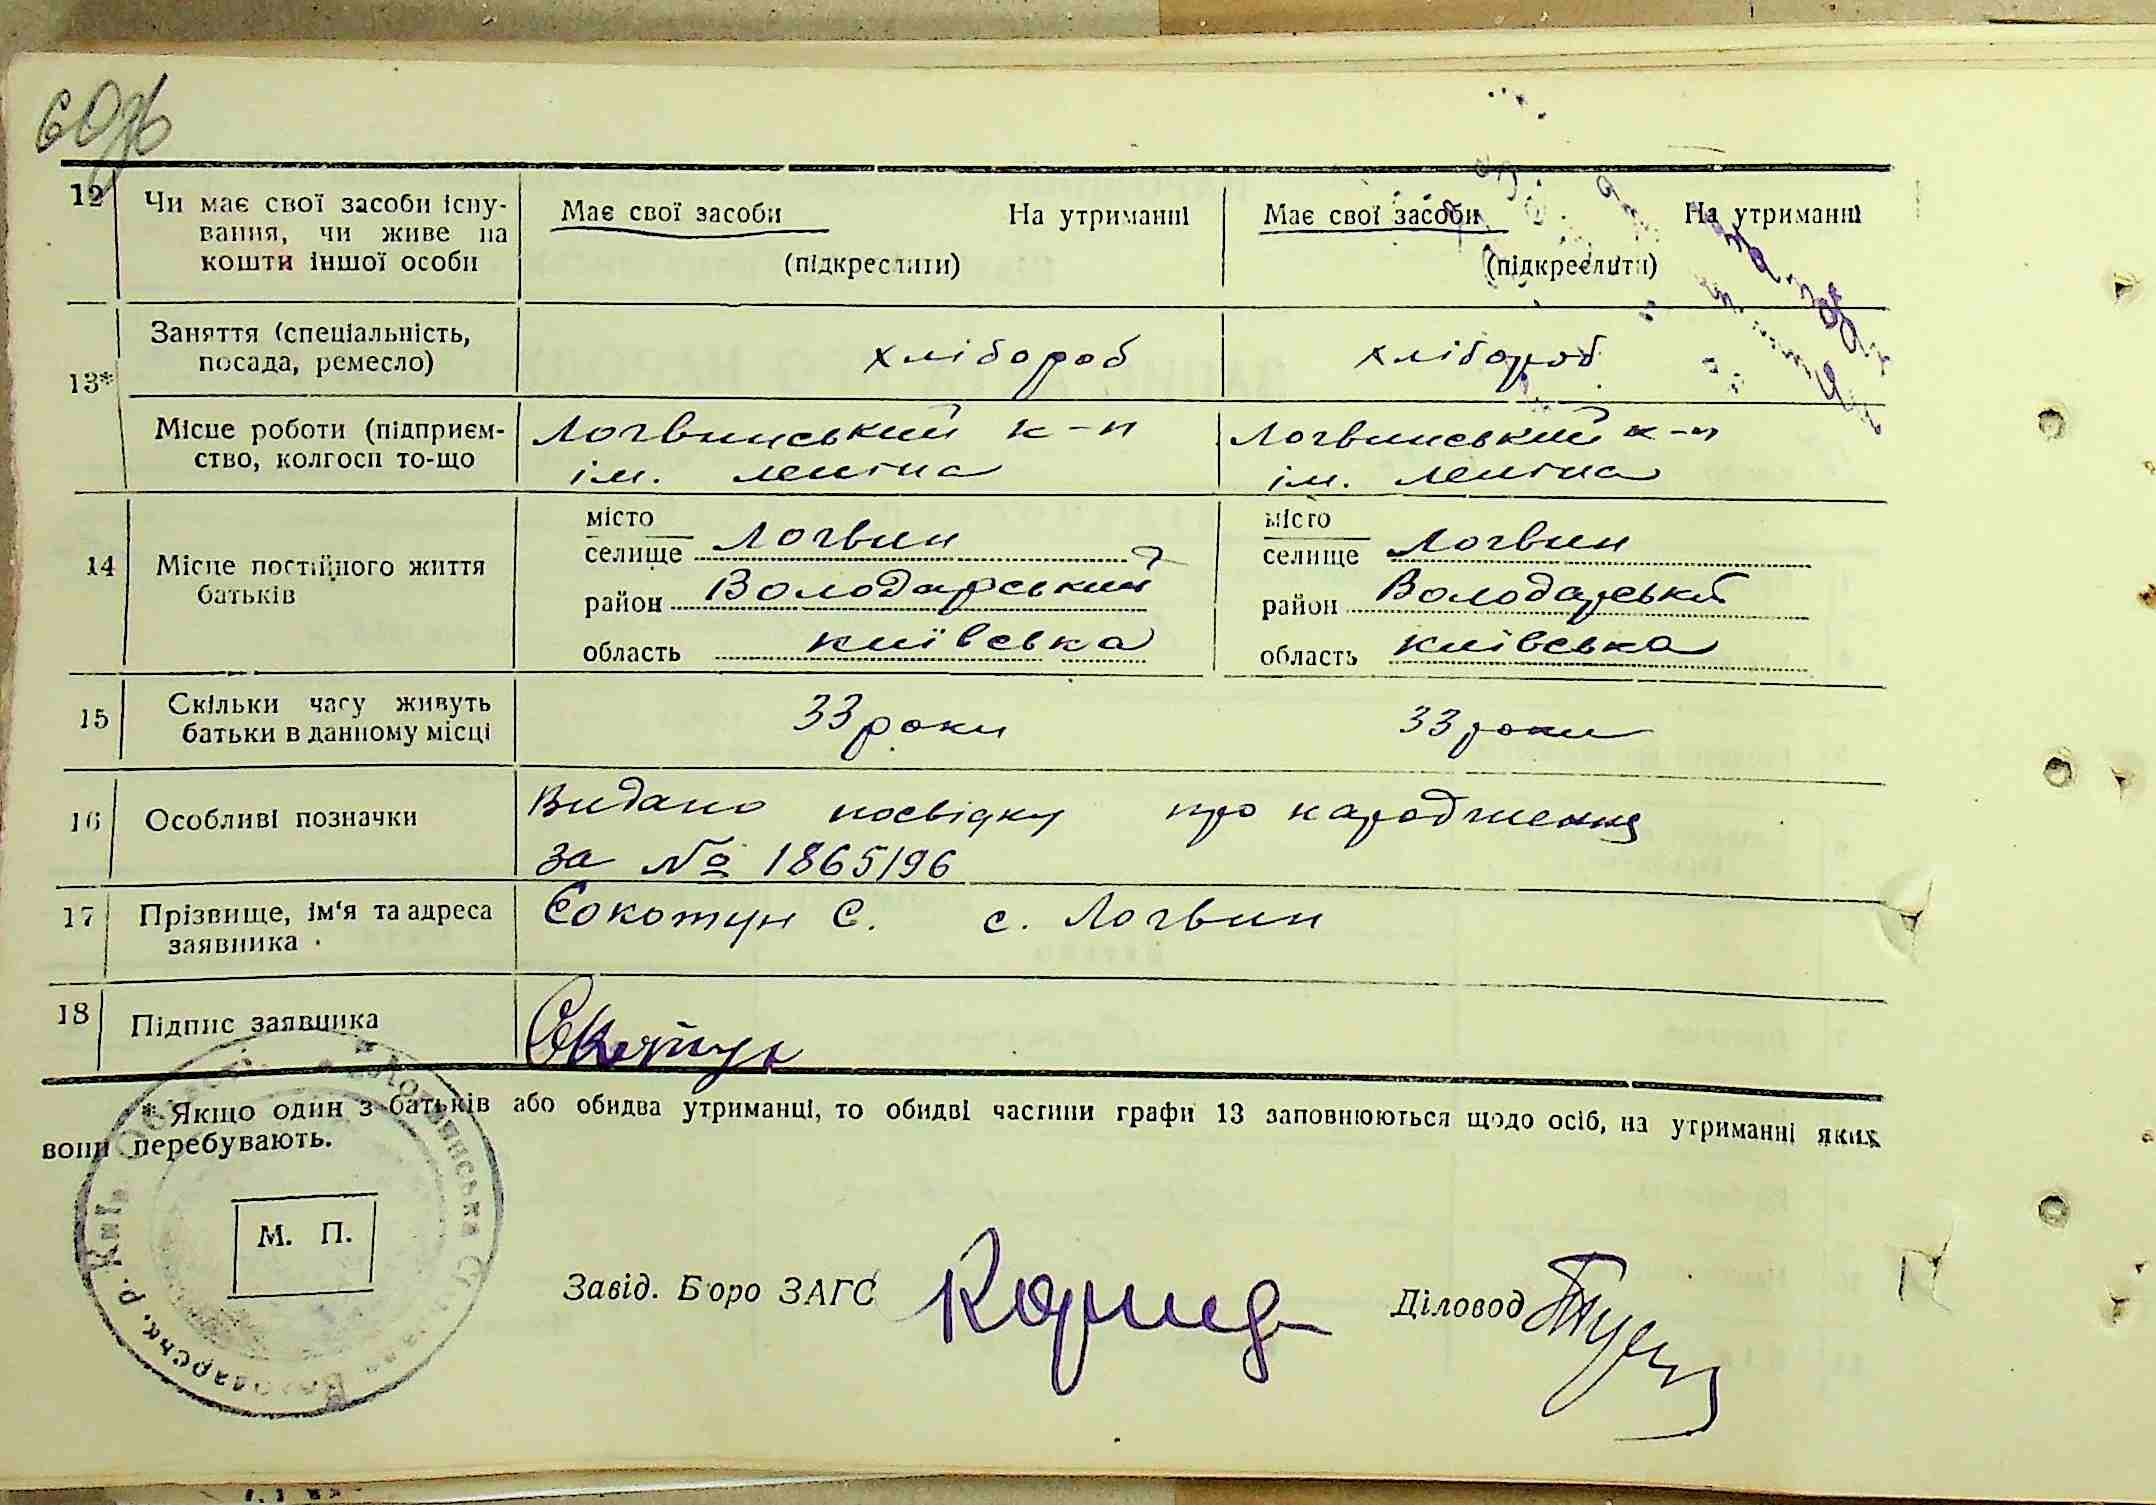 12 Чи має свої засоби існу-
вання, чи живе на
кошти іншої особи
Має свої засоби На утриманні
(підкреслити)
Має свої засоби На утриманні
(підкреслити)
13* Заняття (спеціальність,
посада, ремесло)
хлібороб
хлібороб
Місце роботи (підприєм-
ство, колгосп то-що
Логвинський к-п
ім. Леніна
Логвинський к-п
ім. Леніна
14 Місце постійного життя
батьків
місто
селище Логвин
район Володарський
область київська
місто
селище Логвин
район Володарський
область київська
15 Скільки часу живуть
батьки в данному місці
33 роки
33 роки
16 Особливі позначки
Видано посвідку про народження
за № 1865196
17 Прізвище, ім'я та адреса
заявника
Сокотун С. с. Логвин
18 Підпис заявника
* Якщо один з батьків або обидва утриманці, то обидві частини графи 13 заповнюються щодо осіб, на утриманні яких
вони перебувають.
М. П.
Завід. Бюро ЗАГС
Діловод